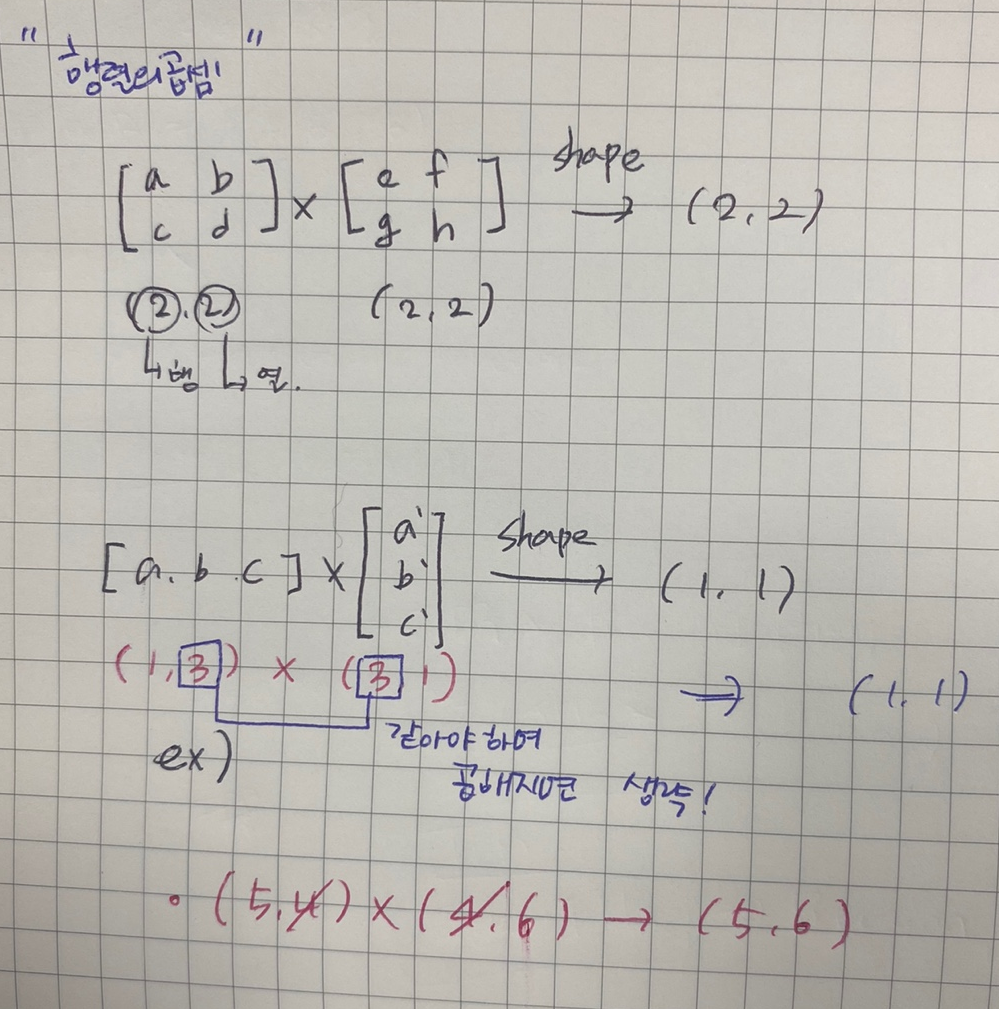 " 행렬의곱셈! "
[a b c d] × [e f g h] shape → (2, 2)
(2, 2) (2, 2)
↳행 ↳열.
[a. b. c] × [a' b' c'] shape → (1, 1)
(1, 3) × (3 1) ⇒ (1, 1)
같아야 하며
ex)
곱해지므로 생략!
• (5, 4) × (4, 6) → (5, 6)